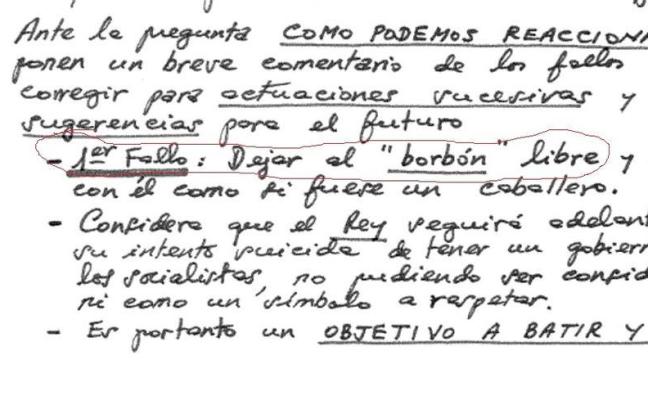 Ante la pregunta COMO PODEMOS REACCIONA
ponen un breve comentario de los fallos
corregir para actuaciones sucesivas y
sugerencias para el futuro
- 1er Fallo: Dejar al "borbón" libre y
con él como si fuese un caballero.
- Considera que el Rey seguirá adelant
su intento suicida de tener un gobier
los socialistas, no pudiendo ser consid
ni como un símbolo a respetar.
- Es portanto un OBJETIVO A BATIR Y